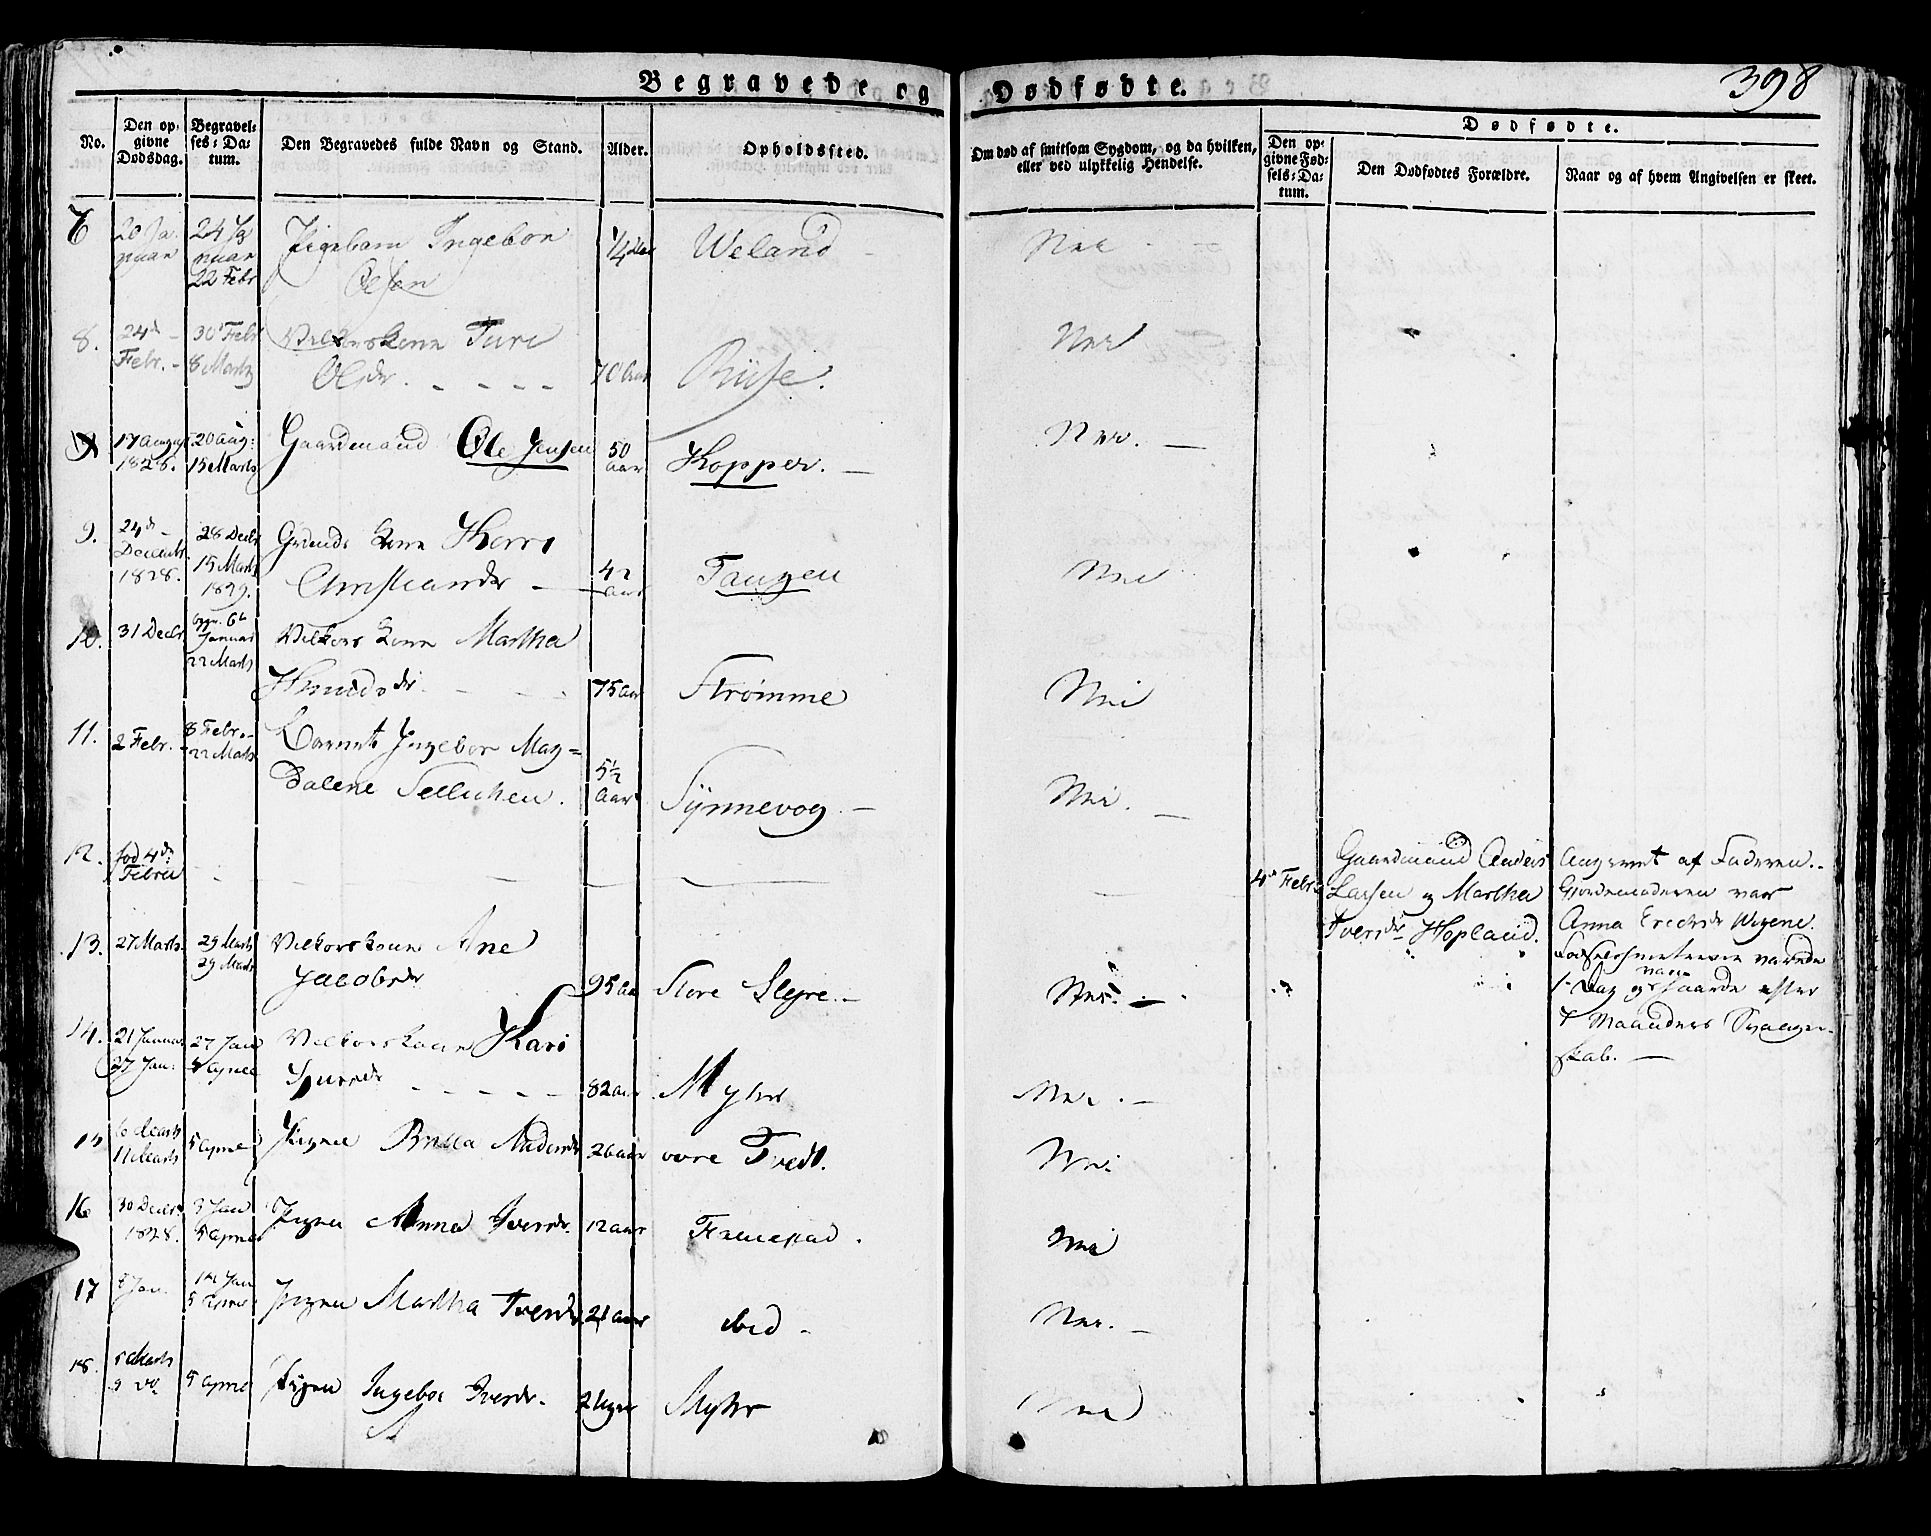 Begravede og Dødfødte.
398
No.
Den opgivne Dødsdag.
Begravelses-Datum.
Den Begravedes fulde Navn og Stand.
Alder.
Opholdssted.
Om død af smitsom Sygdom, og da hvilken, eller ved ulykkelig Hendelse.
Dødfødte.
Den opgivne Fødsels-Datum.
Den Dødfødtes Forældre.
Naar og af hvem Angivelsen er skeet.
7 20 Januar 24 Januar 22 Febr Pigebarn Ingebor Weland Nei
8. 24de Febr. 30 Febr 8 Marts Vilkorskone
Olsdr. 70 Aar Riise. Nei
9 17 August 1828. 20 Aug: 15 Marts Gaardmand Ole Jensen 50 Aar Hopper. Nei.
9. 24de Decembr 1828. 28 Decbr 15 Marts 1829. Kone
Christiansdr 42 aar Tangen Nei
10. 31 Decbr 6te Januar 22 Marts Vilkors Kone Martha
75 Aar Strømme Nei
11. 2 Febr. 8 Febr. 22 Marts Barnet Ingebor Mag=
dalene 5 1/2 Aar Synnevog Nei.
12. fød 4de Februar
4de Febr. Gaardmand Anders
Larsen og Martha
Iversdr Hopland.
Angivet af Faderen.
Gjordemoderen var
Anna
varede
1 Dag og var efter
7 Maaneders Svanger-
skab.
13. 27 Marts. 29 Marts 29 Marts Vilkorskone Ane
Jacobsdr 95 Aar Store Nei.
14. 21 Januar 27 Jan: 27 Jan 5 April Vilkorskone Kari
82 Aar Myhr Nei.
15 6 Marts 11 Marts 5 April Pigen Britta Andersdr 26 aar øvre Tvedt. Nei
16 30 Decbr. 1828. 3 Jan 5 April Pigen Anna Iversdr. 12 aar Nei
17 8 Jan. 14 Jan 5 April Pigen Martha Iversdr 21 aar ibid Nei.
18. 5 Marts 9 do 5 April Pigen Ingebor Iversdr. Myhr Nei